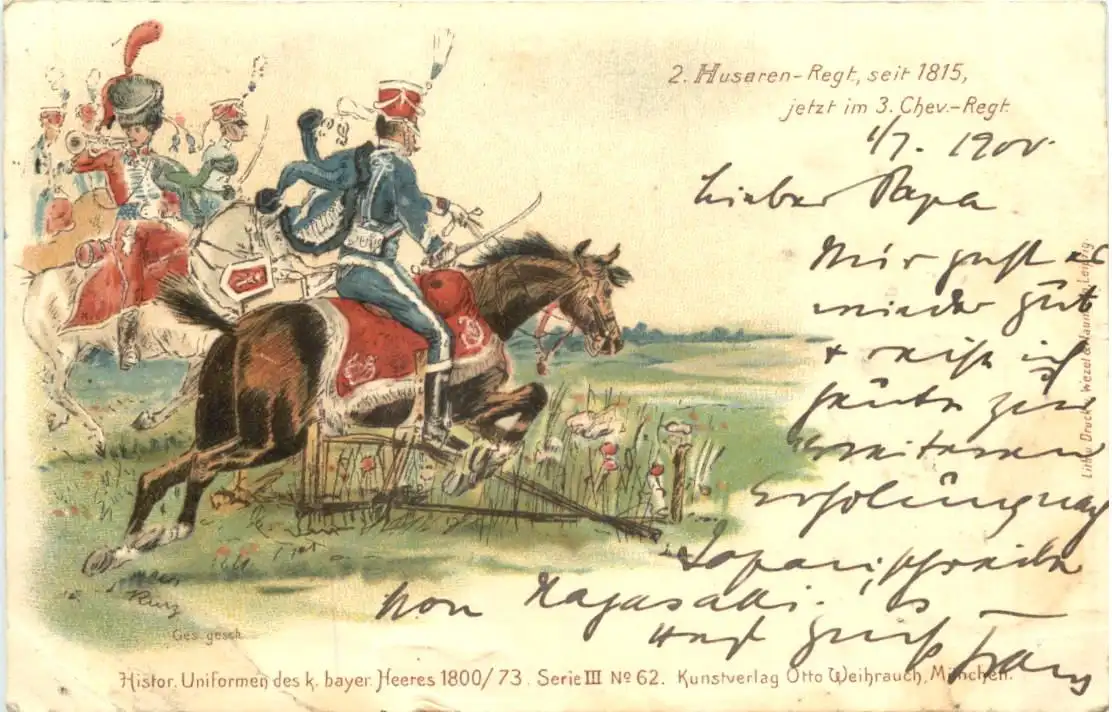 2. Husaren-Regt., seit 1815,
jetzt im 3. Chev.-Regt.
1/7. 1900.
Lieber Papa
Mir geht es
wieder gut
+ reise ich
heute zur
weiteren
Erholung nach
Japan; schreibe
von Nagasaki.
Gruß Franz
Lith. u. Druck v. Wezel & Naumann, Leipzig.
Ges. gesch.
Histor. Uniformen des k. bayer. Heeres 1800/73. Serie III No 62. Kunstverlag Otto Weihrauch, München.